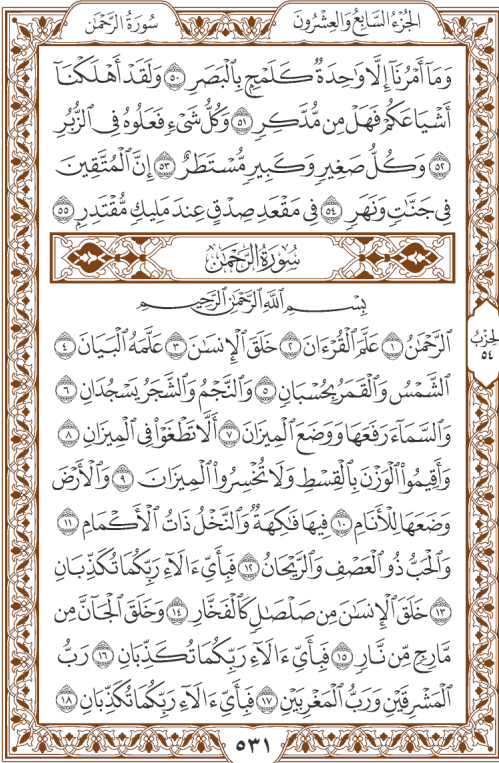 الجزء السابع والعشرون
سورة الرحمن
وَمَا أَمْرُنَا إِلَّا وَاحِدَةٌ كَلَمْحٍ بِالْبَصَرِ ٥٠ وَلَقَدْ أَهْلَكْنَا
أَشْيَاعَكُمْ فَهَلْ مِن مُّدَّكِرٍ ٥١ وَكُلُّ شَىْءٍ فَعَلُوهُ فِى الزُّبُرِ
٥٢ وَكُلُّ صَغِيرٍ وَكَبِيرٍ مُّسْتَطَرٌ ٥٣ إِنَّ الْمُتَّقِينَ
فِى جَنَّٰتٍ وَنَهَرٍ ٥٤ فِى مَقْعَدِ صِدْقٍ عِندَ مَلِيكٍ مُّقْتَدِرٍ ٥٥
سُورَةُ الرَّحْمَٰن
بِسْمِ اللَّهِ الرَّحْمَٰنِ الرَّحِيمِ
الرَّحْمَٰنُ ١ عَلَّمَ الْقُرْءَانَ ٢ خَلَقَ الْإِنسَٰنَ ٣ عَلَّمَهُ الْبَيَانَ ٤
الشَّمْسُ وَالْقَمَرُ بِحُسْبَانٍ ٥ وَالنَّجْمُ وَالشَّجَرُ يَسْجُدَانِ ٦
وَالسَّمَاءَ رَفَعَهَا وَوَضَعَ الْمِيزَانَ ٧ أَلَّا تَطْغَوْا فِى الْمِيزَانِ ٨
وَأَقِيمُوا الْوَزْنَ بِالْقِسْطِ وَلَا تُخْسِرُوا الْمِيزَانَ ٩ وَالْأَرْضَ
وَضَعَهَا لِلْأَنَامِ ١٠ فِيهَا فَٰكِهَةٌ وَالنَّخْلُ ذَاتُ الْأَكْمَامِ ١١
وَالْحَبُّ ذُو الْعَصْفِ وَالرَّيْحَانُ ١٢ فَبِأَىِّ ءَالَاءِ رَبِّكُمَا تُكَذِّبَانِ
١٣ خَلَقَ الْإِنسَٰنَ مِن صَلْصَٰلٍ كَالْفَخَّارِ ١٤ وَخَلَقَ الْجَانَّ مِن
مَّارِجٍ مِّن نَّارٍ ١٥ فَبِأَىِّ ءَالَاءِ رَبِّكُمَا تُكَذِّبَانِ ١٦ رَبُّ
الْمَشْرِقَيْنِ وَرَبُّ الْمَغْرِبَيْنِ ١٧ فَبِأَىِّ ءَالَاءِ رَبِّكُمَا تُكَذِّبَانِ ١٨
الحزب
٥٤
٥٣١